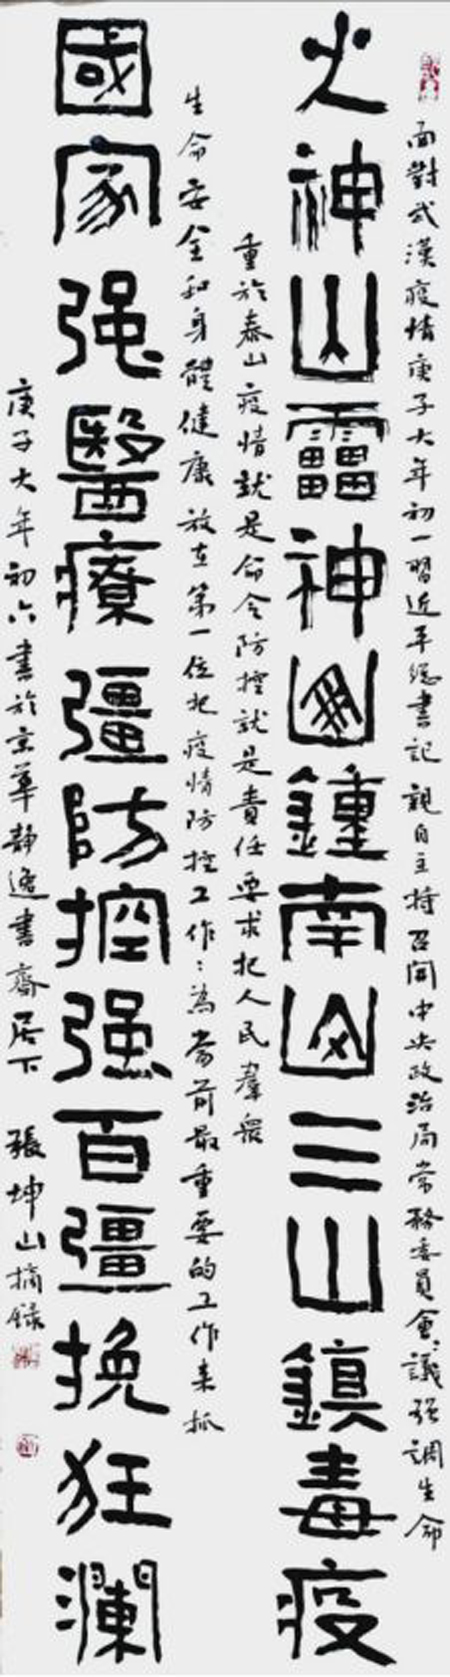 面對武漢疫情庚子大年初一習近平總書記親自主持召開中央政治局常務委員會〻議强調生命
火神山靁神山鍾南山三山鎮毒疫
重於泰山疫情就是命令防控就是責任要求把人民羣衆
生命安全和身體健康放在第一位把疫情防控工作〻為當前最重要的工作来抓
國家强醫療彊防控强百彊挽狂瀾
庚子大年初六書於京華静逸書齋居下 張坤山摘録